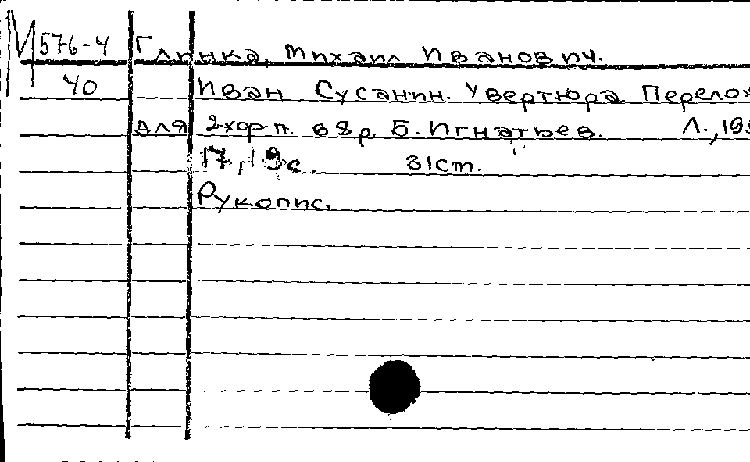 М576-4 Глинка, Михаил Иванович.
40 Иван Сусанин. Увертюра Перелож
для 2хор п. в 8 р. Б. Игнатьев. Л., 193
17, 19 с. 31 cm.
Рукопис.